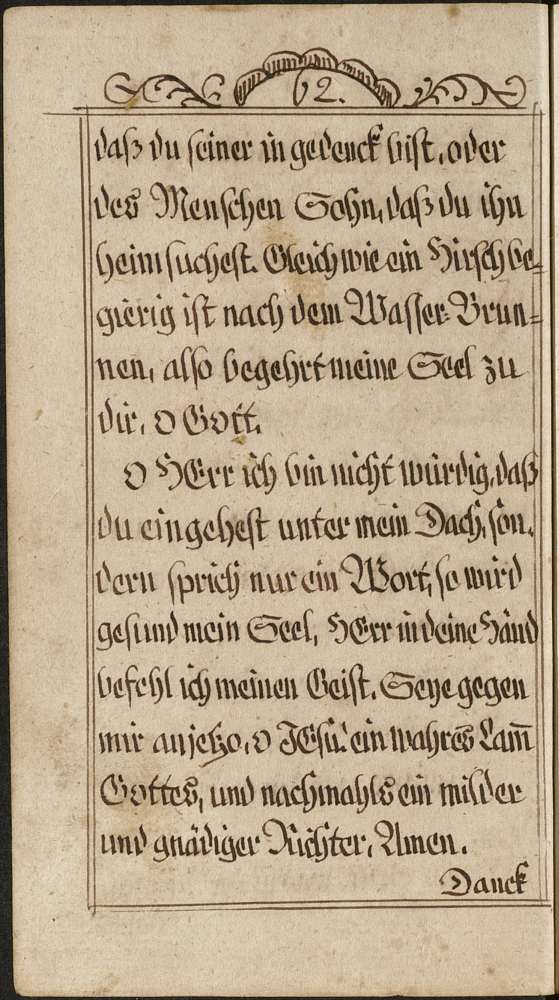 62.
daß du seiner in gedenck bist, oder
des Menschen Sohn, daß du ihn
heimsuchest. Gleich wie ein Hirsch be=
gierig ist nach dem Wasser=Brun=
nen, also begehrt meine Seel zu
dir, O Gott.
O HErr ich bin nicht würdig, daß
du eingehest unter mein Dach, son,
dern sprich nur ein Wort, so wird
gesund mein Seel, HErr in deine Händ
befehl ich meinen Geist. Seye gegen
mir anjetzo, O JEsu! ein wahres Lam̅
Gottes, und nachmahls ein milder
und gnädiger Richter, Amen.
Danck